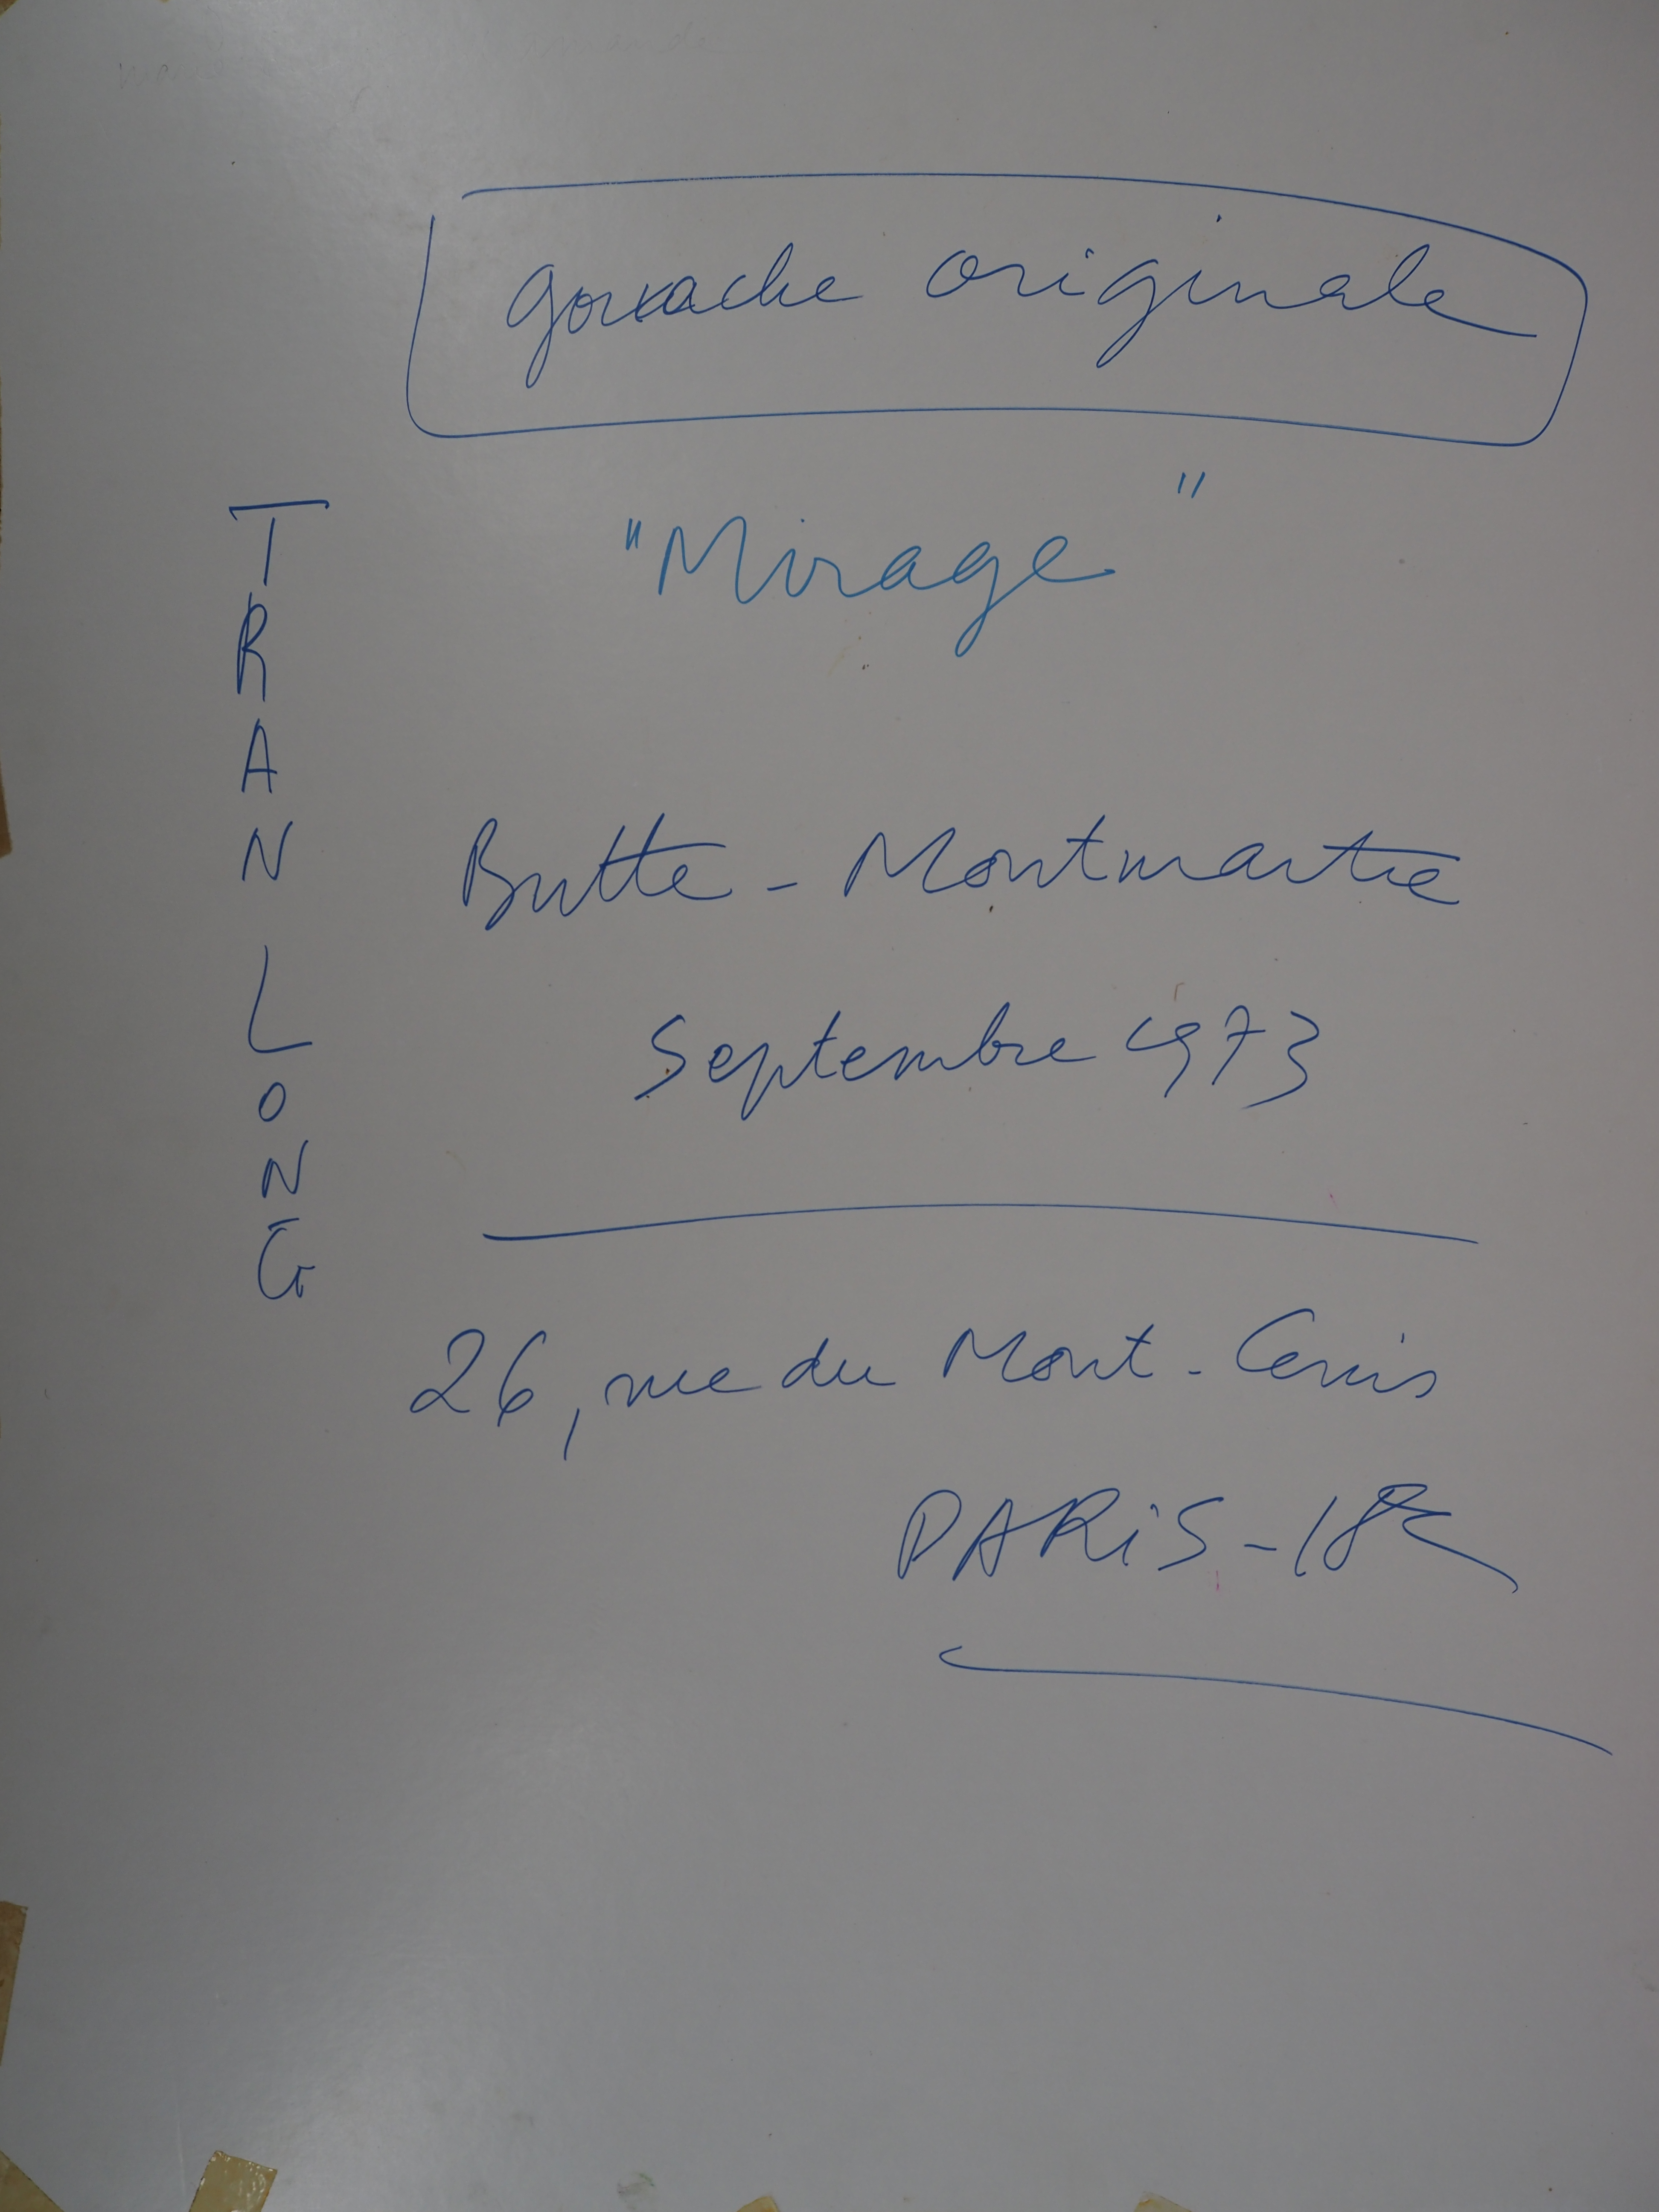 gouache originale
"Mirage"
TRAN LONG
Butte - Montmartre
Septembre 1973
26, rue du Mont-Cenis
PARIS - 18e